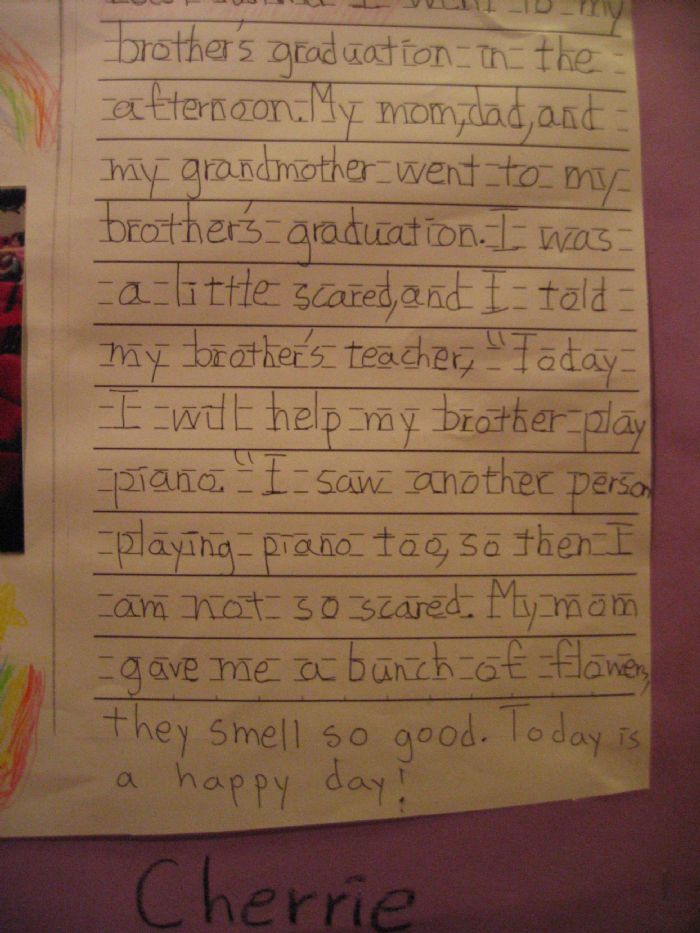 I went to my
brother's graduation in the
afternoon. My mom, dad, and
my grandmother went to my
brother's graduation. I was
a little scared, and I told
my brother's teacher, "Today
I will help my brother play
piano. "I saw another person
playing piano too, so then I
am not so scared. My mom
gave me a bunch of flowers,
they smell so good. Today is
a happy day!
Cherrie